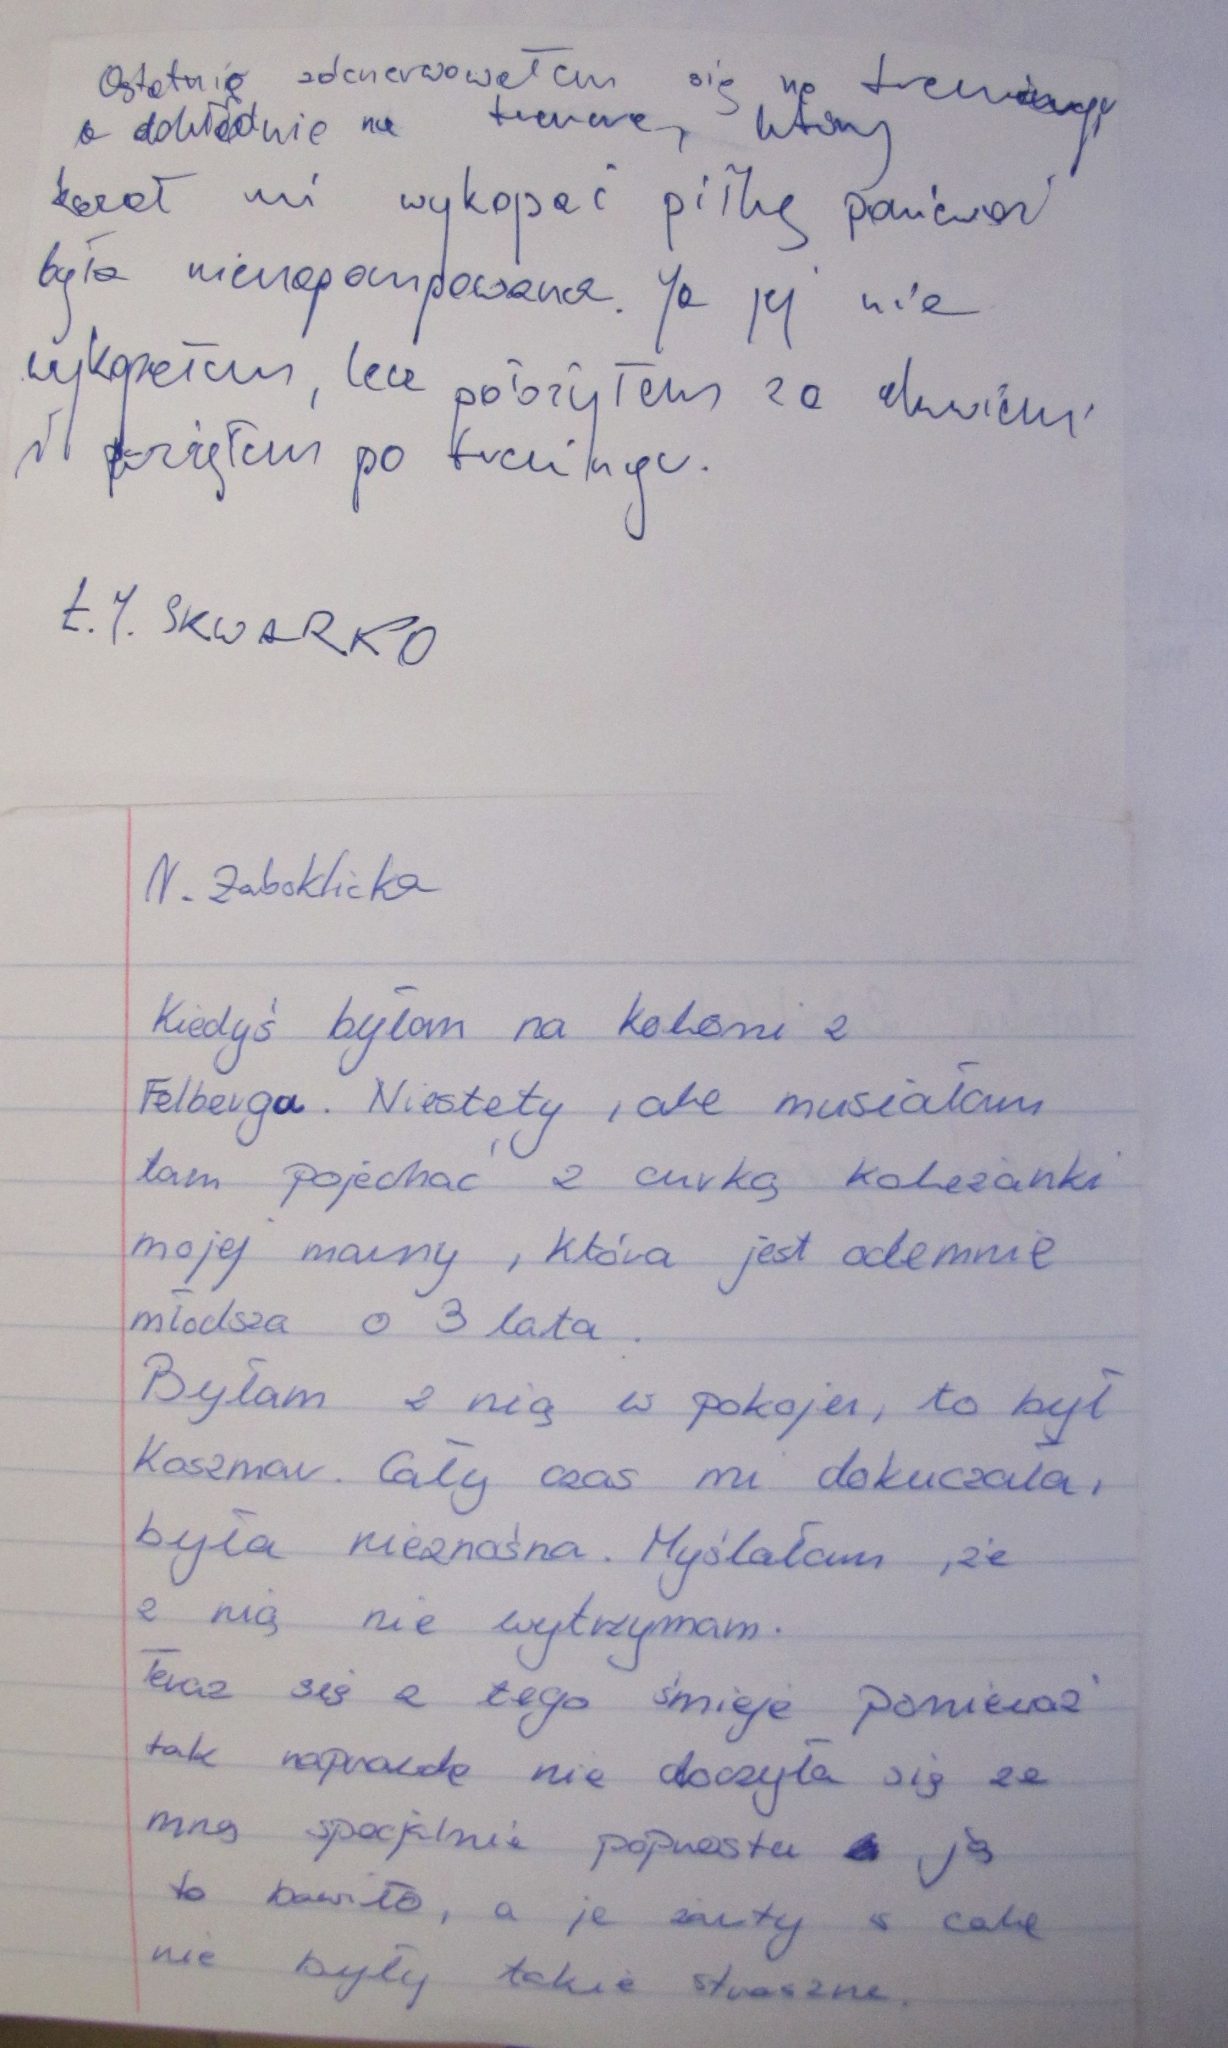 Ostatnio zdenerwowałem się na treningu
a dokładnie na trenera, który
kazał mi wykopać piłkę ponieważ
była nienapompowana. Ja jej nie
wykopałem, lecz położyłem za drzwiami
i wziąłem po treningu.
Ł.J. SKWARKO
N. Zaboklicka
Kiedyś byłam na koloni z
Felberga. Niestety, ale musiałam
tam pojechać z curką koleżanki
mojej mamy, która jest odemnie
młodsza o 3 lata.
Byłam z nią w pokoju, to był
koszmar. Cały czas mi dokuczała,
była nieznośna. Myślałam, że
z nią nie wytrzymam.
Teraz się z tego śmieję ponieważ
tak naprawdę nie doczyła się ze
mną specjalnie poprostu ją
to bawiło, a je żarty wcale
nie były takie straszne.